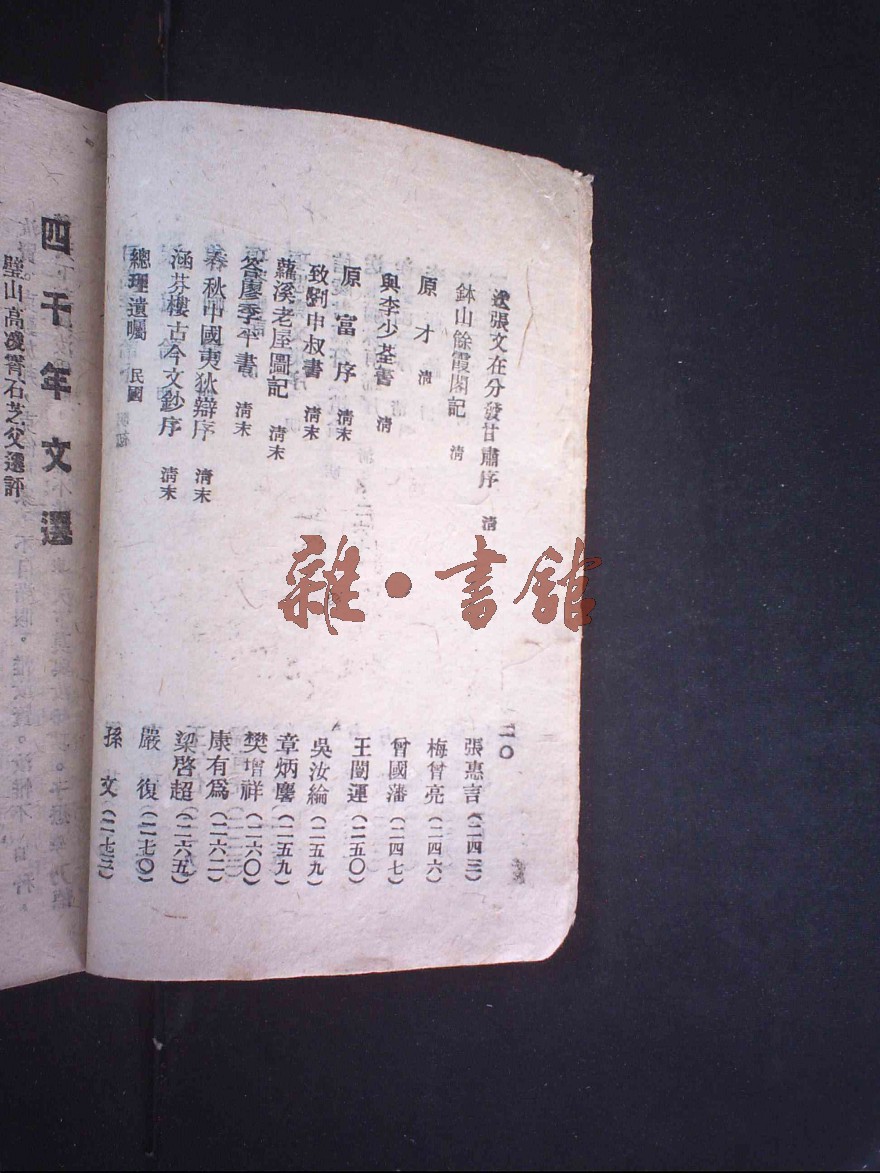 二〇
送張文在分發甘肅序 清 張惠言(二四三)
鉢山餘霞閣記 清 梅曾亮(二四六)
原才 清 曾國藩(二四七)
與李少荃書 清 王闓運(二五〇)
原富序 清末 吳汝綸(二五九)
致劉申叔書 清末 章炳麐(二五九)
蘿溪老屋圖記 清末 樊增祥(二六〇)
答廖季平書 清末 康有爲(二六二)
春秋中國夷狄辯序 清末 梁啓超(二六五)
涵芬樓古今文鈔序 清末 嚴復(二七〇)
總理遺囑 民國 孫文(二七三)
四千年文選
璧山高凌霄石芝父選評
雜·書館